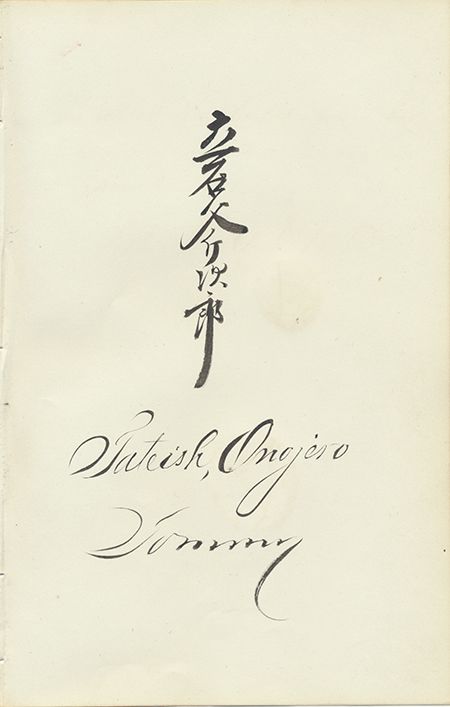 立石斧次郎
Tateish, Onojero
Tommy